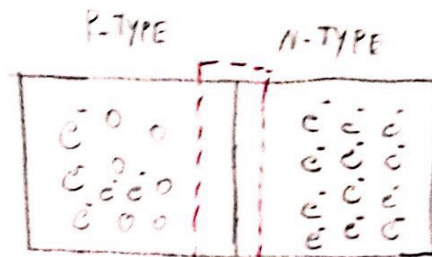 P-TYPE N-TYPE
e⁻ o o e⁻ e⁻ e⁻
e⁻ o e⁻ e⁻ e⁻
e⁻ e⁻ o e⁻ e⁻ e⁻
e⁻ o o e⁻ e⁻ e⁻